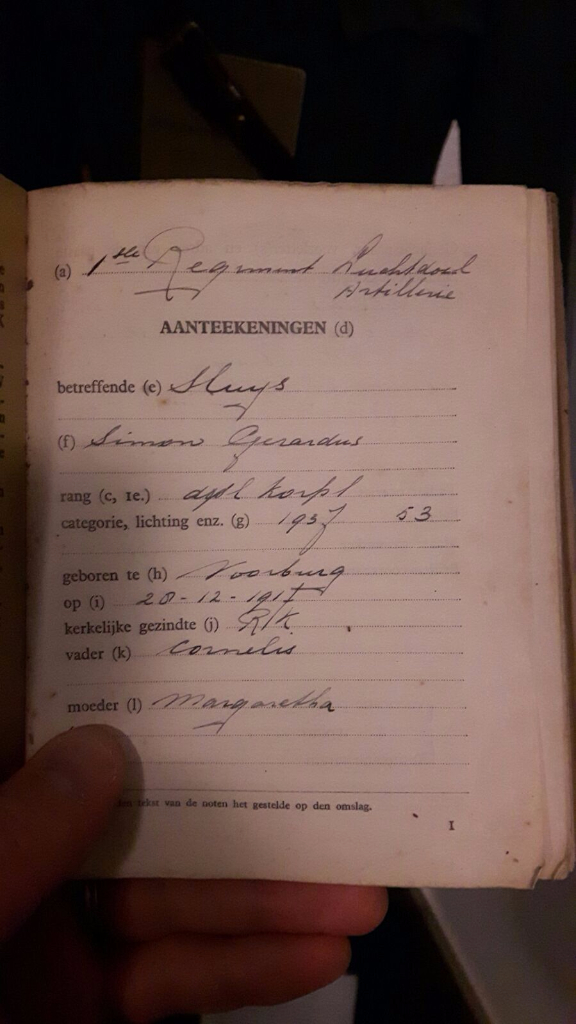 (a) 1ste Regiment Luchtdoel
Artillerie
AANTEEKENINGEN (d)
betreffende (e) Sluys
(f) Simon Gerardus
rang (c, 1e.) korpl
categorie, lichting enz. (g) 1937 53
geboren te (h) Voorburg
op (i) 20-12-1917
kerkelijke gezindte (j) R/K.
vader (k) Cornelis
moeder (l) Margaretha
tekst van de noten het gestelde op den omslag.
1